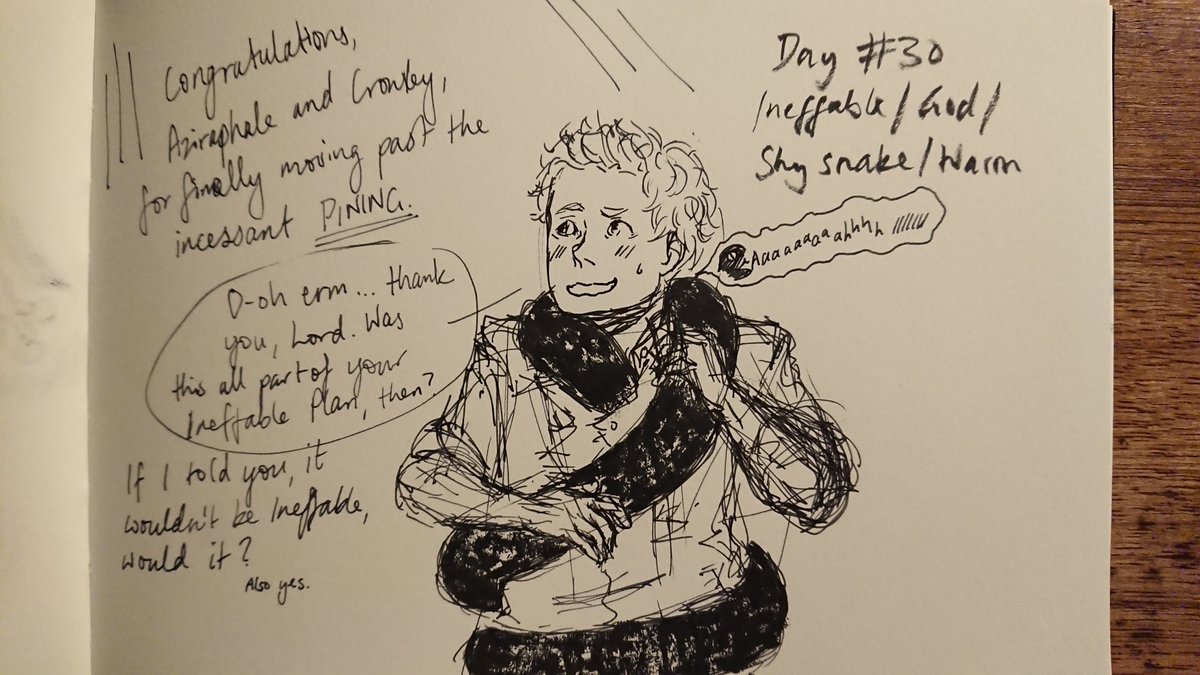 Congratulations,
Aziraphale and Crowley,
for finally moving past the
incessant PINING.
Day #30
Ineffable/God/
Shy snake/Warm
Aaaaaaaaahhhh
O-oh erm... thank
you, Lord. Was
this all part of your
Ineffable Plan, then?
If I told you, it
wouldn't be Ineffable,
would it?
Also yes.